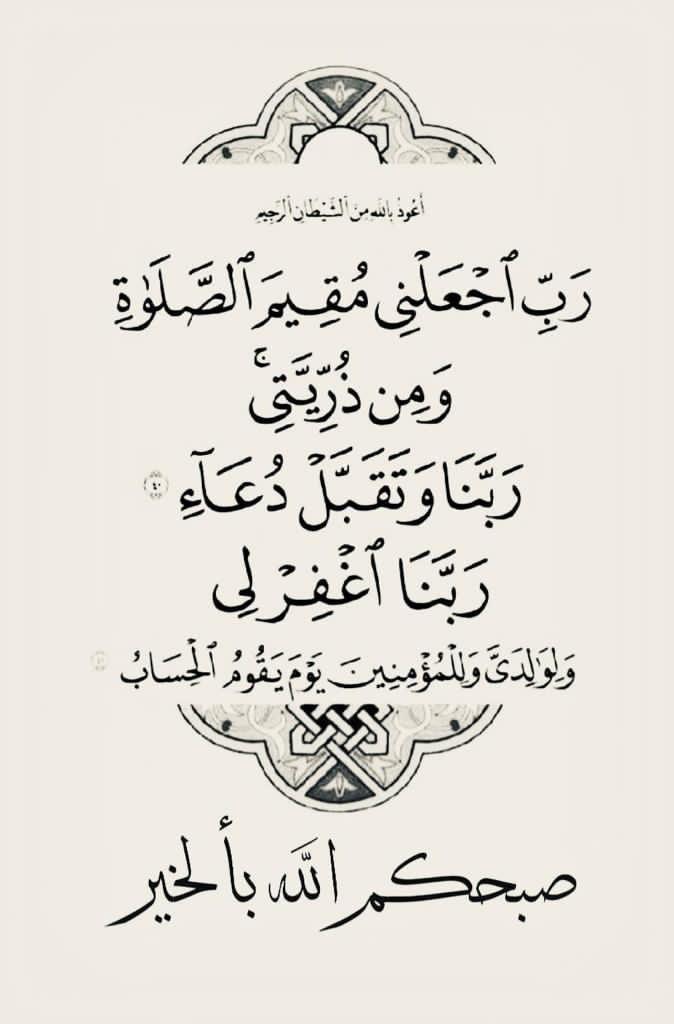 أَعُوذُ بِاللَّهِ مِنَ ٱلشَّيْطَانِ ٱلرَّجِيمِ
رَبِّ ٱجْعَلْنِى مُقِيمَ ٱلصَّلَوٰةِ
وَمِن ذُرِّيَّتِى ۚ
رَبَّنَا وَتَقَبَّلْ دُعَآءِ ٤٠
رَبَّنَا ٱغْفِرْ لِى
وَلِوَٰلِدَىَّ وَلِلْمُؤْمِنِينَ يَوْمَ يَقُومُ ٱلْحِسَابُ
صبحكم الله بألخير